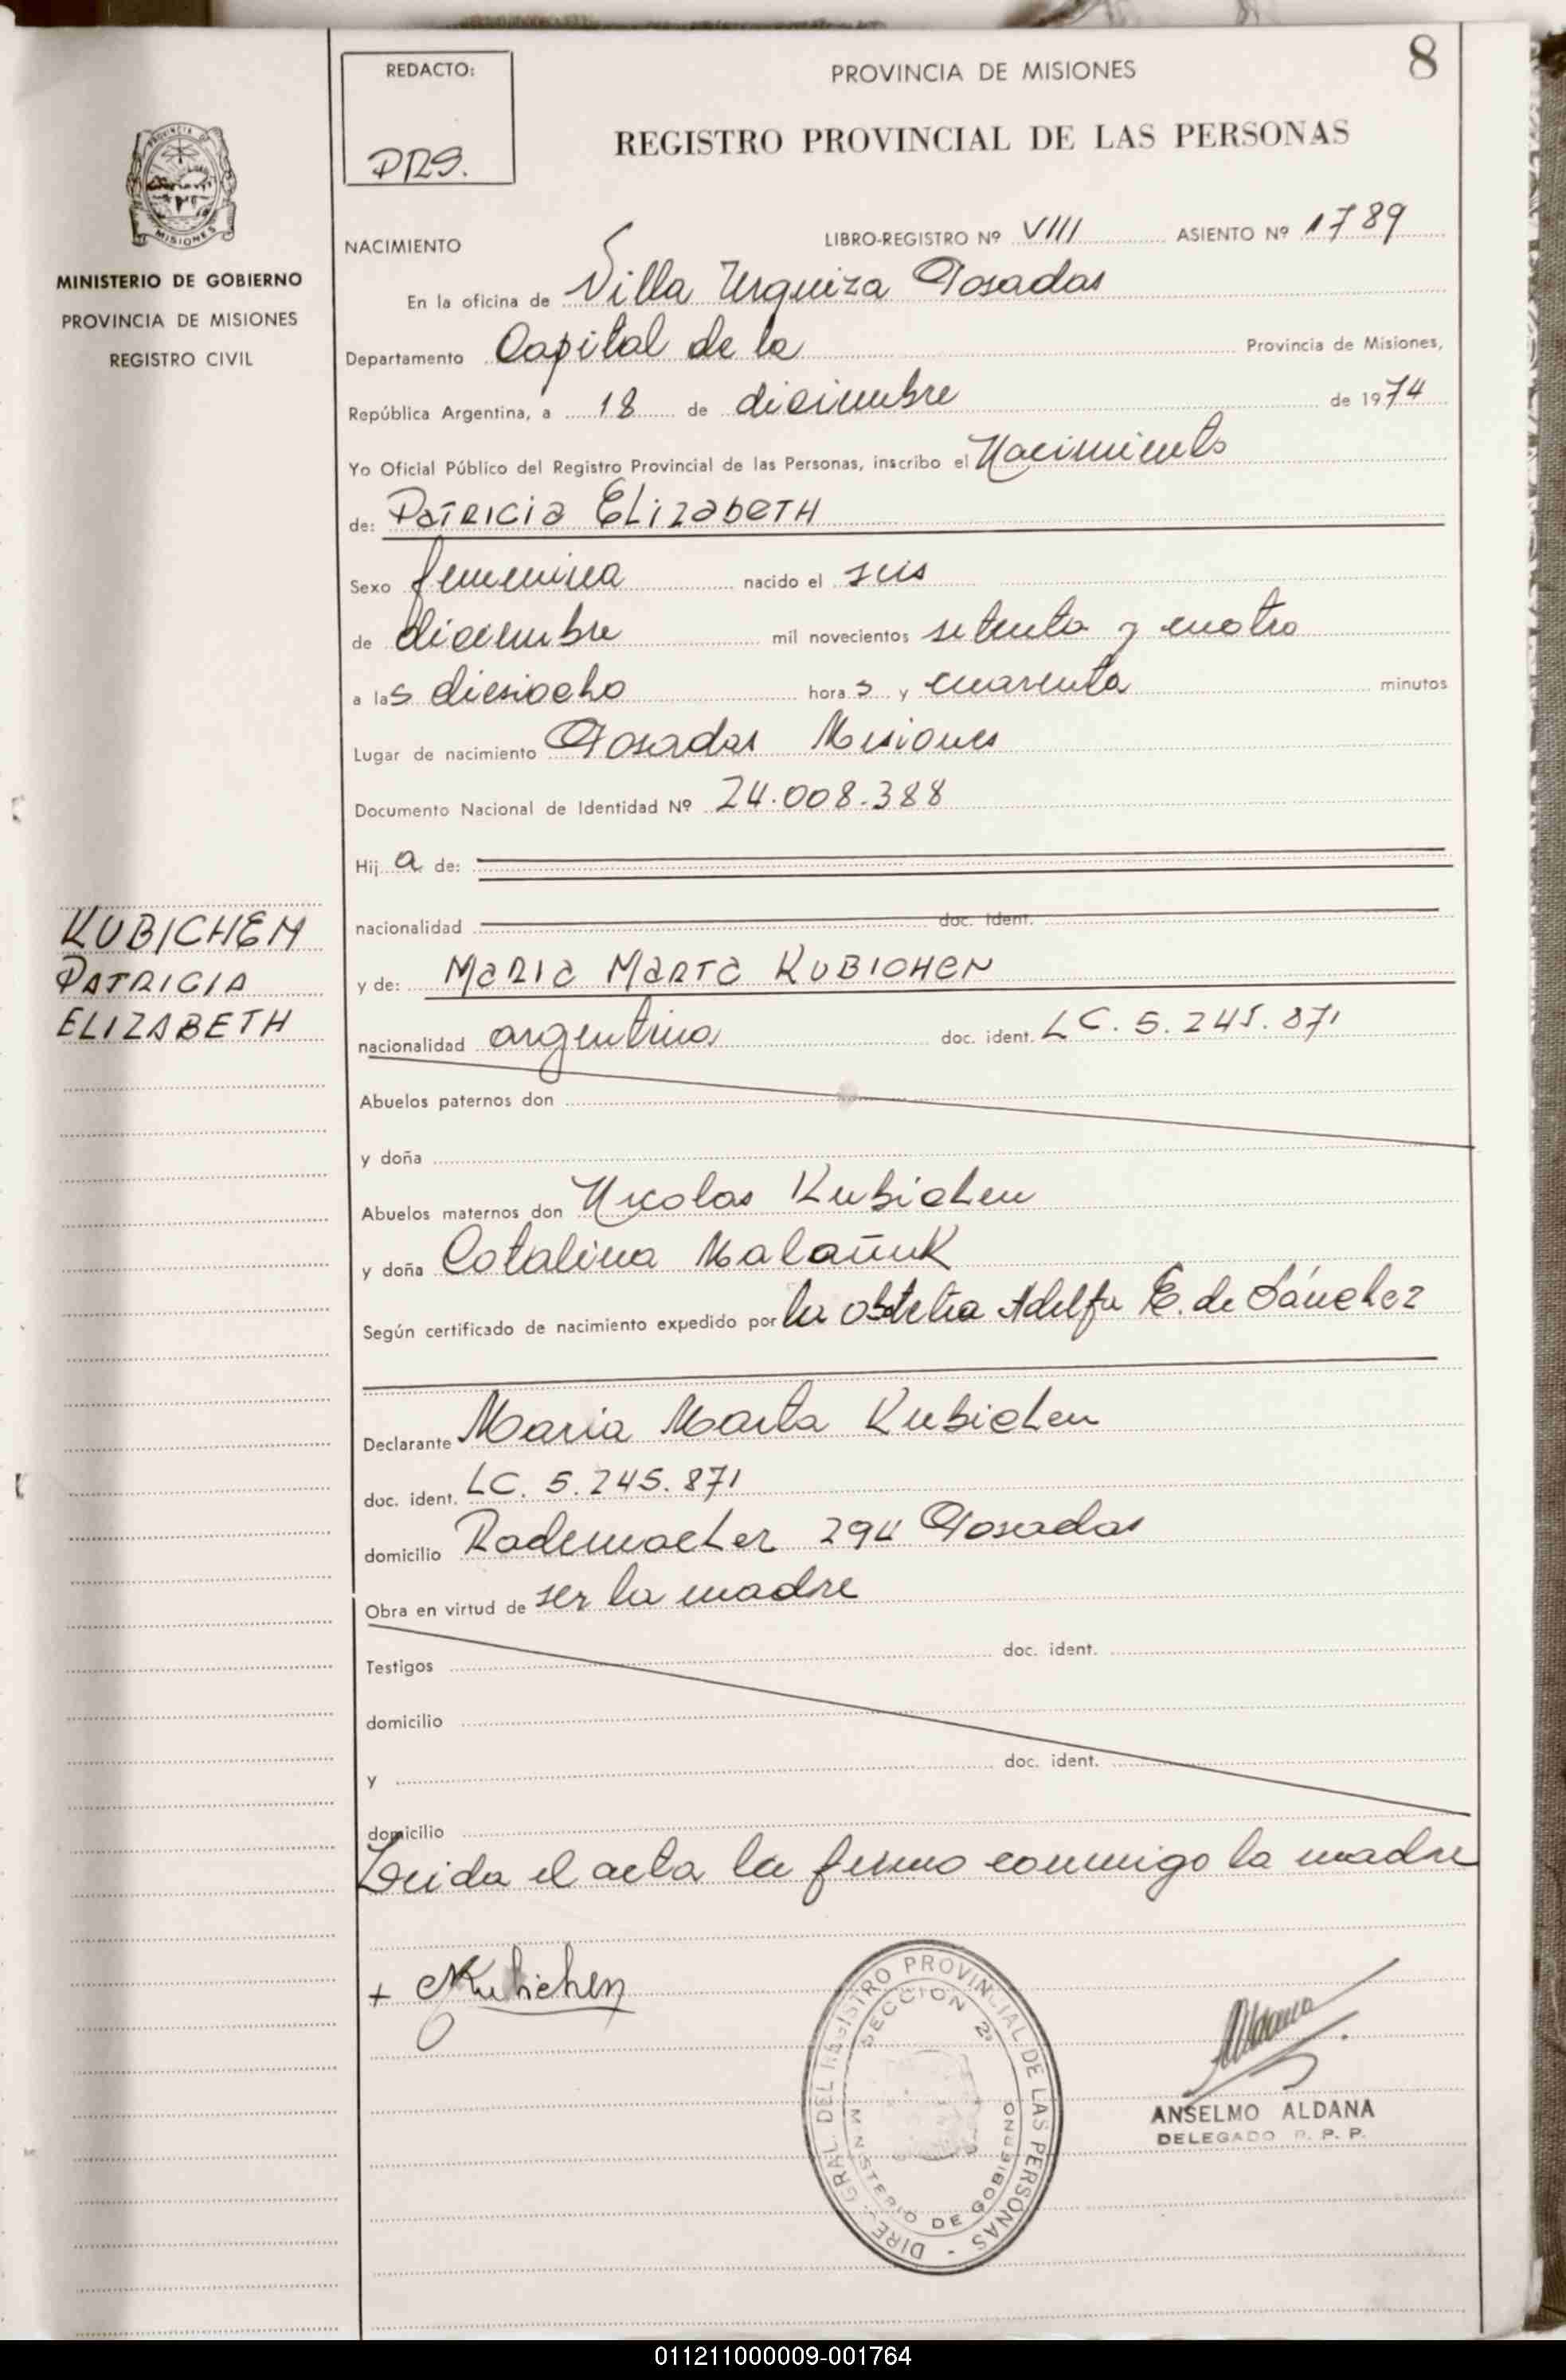 8
REDACTO:
PROVINCIA DE MISIONES
REGISTRO PROVINCIAL DE LAS PERSONAS
PROVINCIA DE
MISIONES
MINISTERIO DE GOBIERNO
PROVINCIA DE MISIONES
REGISTRO CIVIL
NACIMIENTO LIBRO-REGISTRO Nº VIII ASIENTO Nº 1789
En la oficina de Villa Urquiza Posadas
Departamento Capital de la Provincia de Misiones,
República Argentina, a 18 de diciembre de 1974
Yo Oficial Público del Registro Provincial de las Personas, inscribo el Nacimiento
de: Patricia Elizabeth
Sexo femenina nacido el seis
de diciembre mil novecientos setenta y cuatro
a las diesiocho horas y cuarenta minutos
Lugar de nacimiento Posadas Misiones
Documento Nacional de Identidad Nº 24.008.388
Hija de:
nacionalidad doc. ident.
KUBICHEM
PATRICIA
ELIZABETH
y de: Maria Marta KUBICHEN
nacionalidad argentina doc. ident. LC. 5.245.871
Abuelos paternos don
y doña
Abuelos maternos don Nicolas Kubichen
y doña Catalina Malañuk
Según certificado de nacimiento expedido por la obstetra Adelfa E. de Sánchez
Declarante Maria Marta Kubichen
doc. ident. LC. 5.245.871
domicilio Rademacher 294 Posadas
Obra en virtud de ser la madre
Testigos doc. ident.
domicilio
y doc. ident.
domicilio
Leida el acta la firmo conmigo la madre
+ Kubichen
DIRE. GRAL. DEL REGISTRO PROVINCIAL DE LAS PERSONAS -
SECCION 2ª
MINISTERIO DE GOBIERNO
Aldana
ANSELMO ALDANA
DELEGADO R. P. P.
011211000009-001764